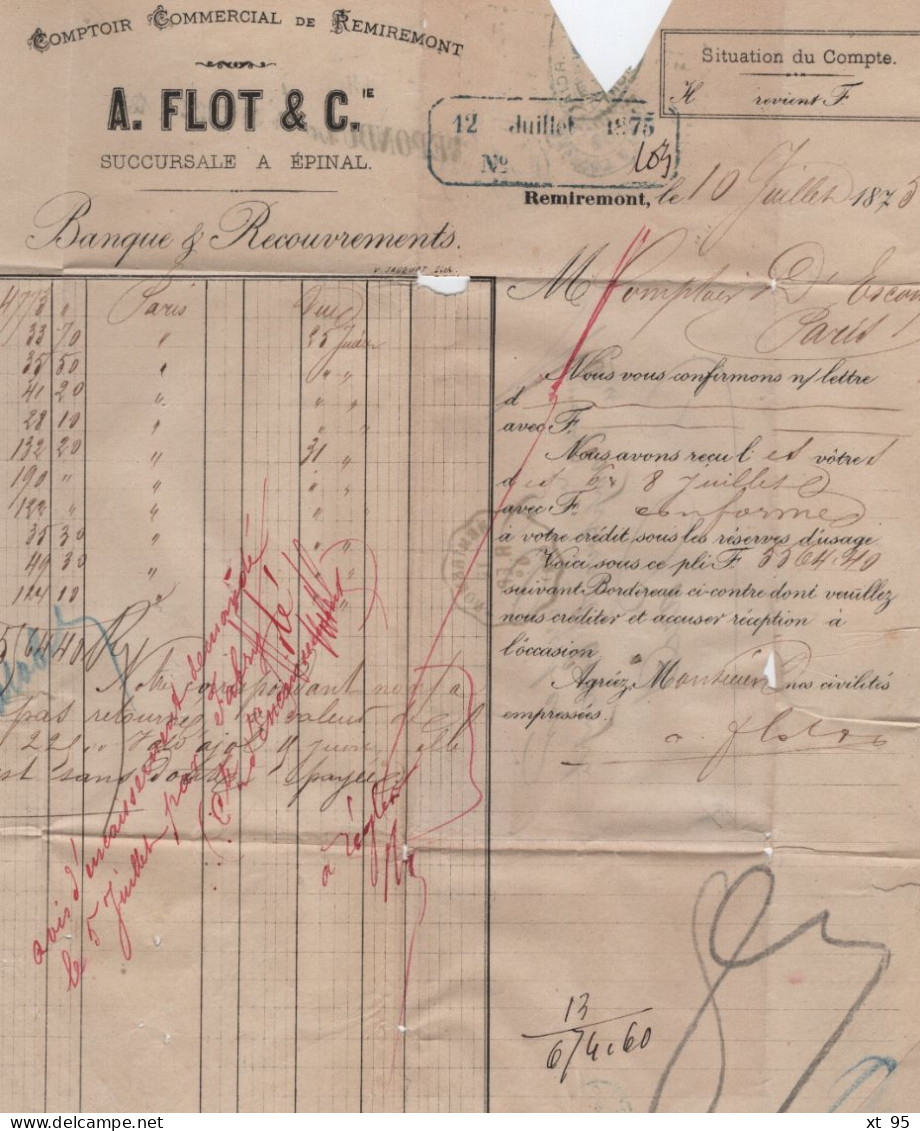 COMPTOIR COMMERCIAL DE REMIREMONT
A. FLOT & C.IE
SUCCURSALE A ÉPINAL.
Banque & Recouvrements.
Situation du Compte.
revient F.
12 Juillet 1875
No 103
Remiremont, le 10 Juillet 1875
M Comptoir D'Escom
Paris
Nous vous confirmons n/ lettre
d
avec F.
Nous avons reçu l et vôtre
d 6 & 8 Juillet
avec F. conformes
à votre crédit sous les réserves d'usage.
Voici sous ce pli F. 5564.40
suivant Bordereau ci-contre dont veuillez
nous créditer et accuser réception à
l'occasion.
Agréez, Monsieur nos civilités
empressées.
a. flot & Co
4773 " Paris
33 70 " 25 Juillet
35 50 " " "
41 20 " " "
28 10 " " "
132 20 " 31 "
190 " " " "
122 " " " "
35 30 " " "
49 30 " " "
124 10 " " "
5564 40
Notre correspondant nous a
pas retourné valeur de
est sans doute payée
avis d'encaissement demandé
le 5 Juillet par Fabry
à régler
13
674.60
xt 95